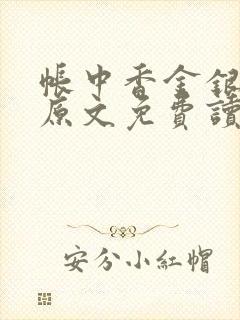 帳中香金銀
原文免費讀
安分小紅帽